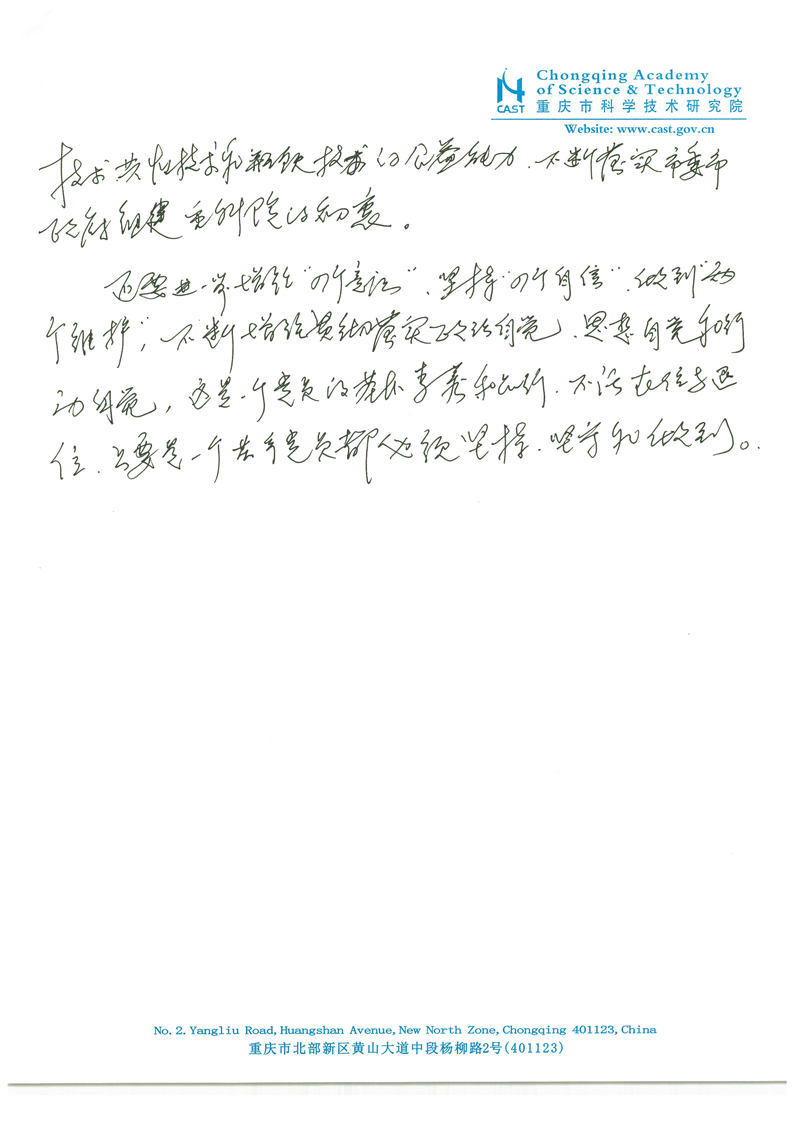 Chongqing Academy
of Science & Technology
CAST
重庆市科学技术研究院
Website: www.cast.gov.cn
技术共性技术和瓶颈技术的公益能力、不断落实市委市
政府组建重科院的初衷。
还要进一步增强“四个意识”、坚持“四个自信”、做到“两
个维护”，不断增强贯彻落实政治自觉、思想自觉和行
动自觉，这是一个党员的基本素养和必须、不论在位与退
位、只要是一个共产党员都必须坚持、坚守和做到。
No. 2. Yangliu Road, Huangshan Avenue, New North Zone, Chongqing 401123, China
重庆市北部新区黄山大道中段杨柳路2号(401123)